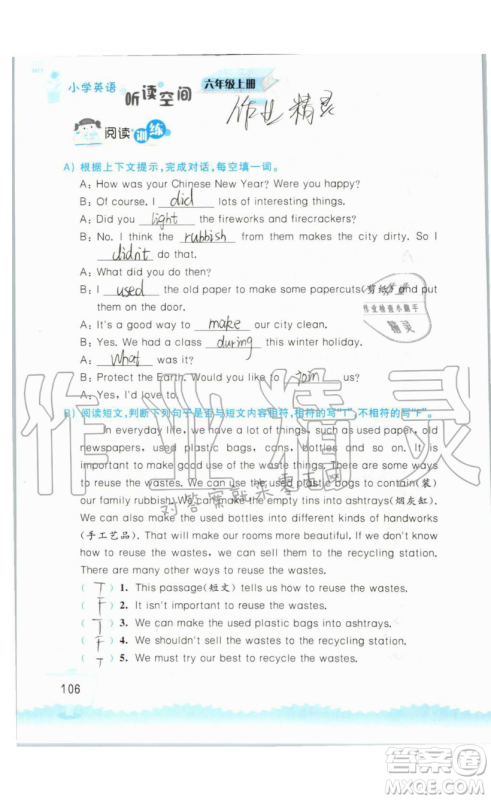 小学英语 听读空间 六年级上册
作业精灵
阅读训练
A）根据上下文提示，完成对话，每空填一词。
A: How was your Chinese New Year? Were you happy?
B: Of course. I did lots of interesting things.
A: Did you light the fireworks and firecrackers?
B: No. I think the rubbish from them makes the city dirty. So I
didn't do that.
A: What did you do then?
B: I used the old paper to make some papercuts(剪纸) and put
them on the door.
A: That's a great way to make our city clean.
B: Yes. We had a class during this winter holiday.
A: What was it?
B: Protect the Earth. Would you like to join us?
A: Yes, I'd love to.
B）阅读短文，判断下列句子是否与短文内容相符，相符的写"T"，不相符的写"F"。
In everyday life, we have many used things, such as used paper, old
newspapers, used plastic bags, cans, bottles and so on. In fact, we
can make good use of the waste things. There are many ways to
reuse the wastes. We can use the used plastic bags to contain(装) our
family rubbish. We can make the empty tins into ashtrays(烟灰缸).
We can also make the used bottles into different kinds of handworks
(手工艺品). All of these can make our rooms more beautiful. If there
are too many used things, we can sell them to the recycling station.
There are many other ways to reuse the wastes.
( T ) 1. This passage(短文) tells us how to reuse the wastes.
( F ) 2. It isn't important to reuse the wastes.
( T ) 3. We can make the used plastic bags into ashtrays.
( F ) 4. We shouldn't sell the wastes to the recycling station.
( T ) 5. We must try our best to recycle the wastes.
106
作业精灵
对答案就来枣庄网
作业检查小助手
精灵
答案圈